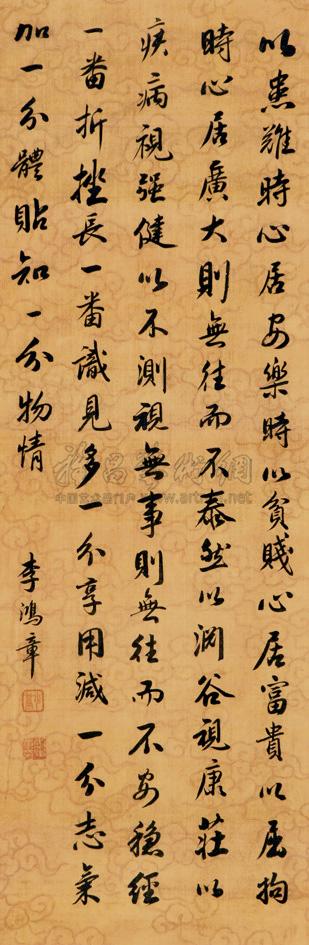 以患難時心居安樂時以貧賤心居富貴以屈拘
時心居廣大則無往而不泰然以淵谷視康莊以
疾病視强健以不測視無事則無往而不安穩經
一番折挫長一番識見多一分享用減一分志氣
加一分體貼知一分物情
李鴻章
雅昌藝術網
中国艺术品门户